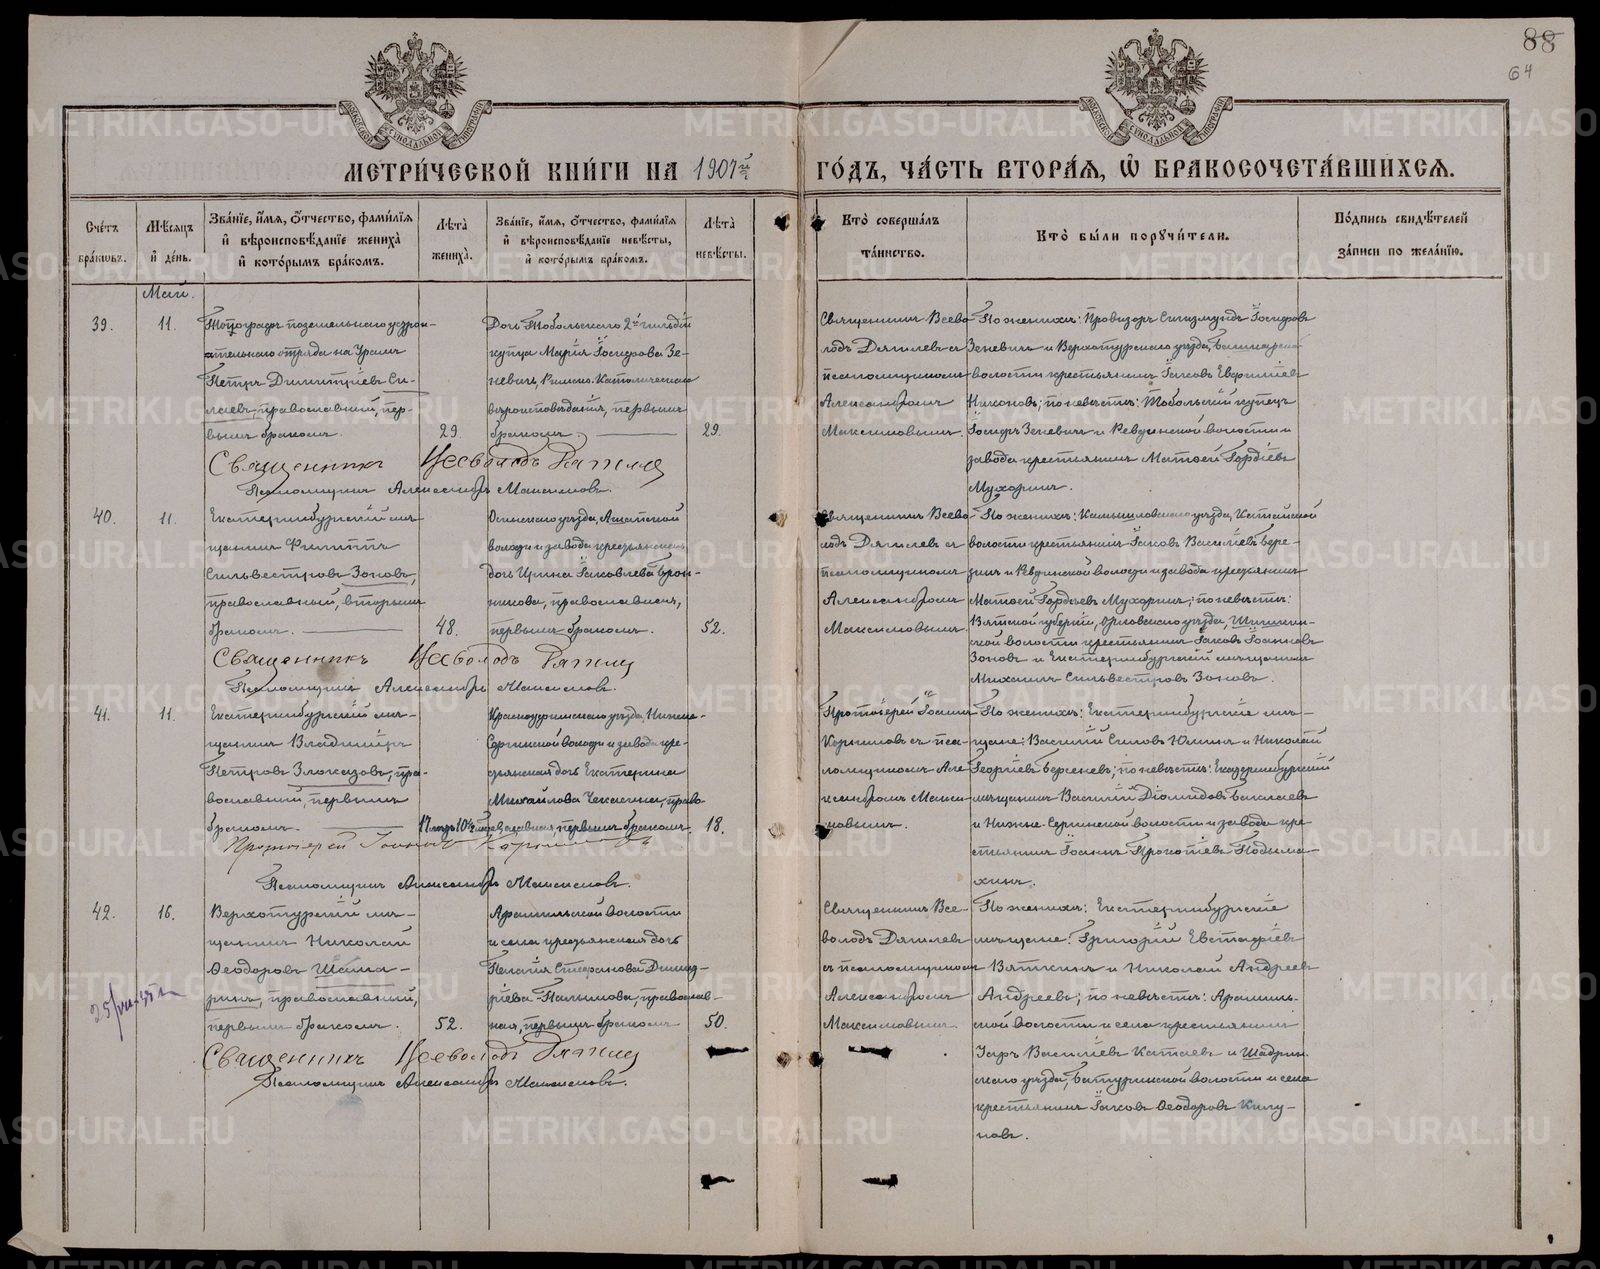 88
64
МЕТРИ́ЧЕСКОЙ КНИ́ГИ НА 1907й ГО́ДЪ, ЧА́СТЬ ВТОРА́Я, Ѽ БРАКОСОЧЕТА́ВШИХСЯ.
Сче́тъ бра́ковъ.
Мѣ́сяцъ и҆ де́нь.
Зва́нїе, и҆́мя, ѻ҆́тчество, фами́лїя и҆ вѣроисповѣ́данїе жениха̀ и҆ кото́рымъ бра́комъ.
Лѣта̀ жениха̀.
Зва́нїе, и҆́мя, ѻ҆́тчество, фами́лїя и҆ вѣроисповѣ́данїе невѣ́сты, и҆ кото́рымъ бра́комъ.
Лѣта̀ невѣ́сты.
Кто̀ соверша́лъ та́инство.
Кто̀ бы́ли порꙋчи́тели.
По́дпись свидѣ́телей за́писи по жела́нїю.
Май.
39.
11.
Топографъ поземельно-устрои-
тельнаго отряда на Уралѣ
Петръ Димитріевъ Си-
лаевъ, православный, пер-
вымъ бракомъ.
29.
Дочь Тобольскаго 2й гильдіи
купца Марія Іосифова Зе-
невичъ, Римско-Католическаго
вѣроисповѣданія, первымъ
бракомъ.
29.
Священникъ Всево-
лодъ Дягилевъ съ
псаломщикомъ
Александромъ
Максимовымъ.
По женихѣ: Провизоръ Сигизмундъ Іосифовъ
Зеневичъ и Верхотурскаго уѣзда,
волости крестьянинъ Іаковъ
Никоновъ; по невѣстѣ: Тобольскій купецъ
Іосифъ Зеневичъ и Ревдинской волости и
завода крестьянинъ Матѳей Гордѣевъ
Мухоринъ.
Священникъ Всеволодъ Дягилевъ
Псаломщикъ Александръ Максимовъ.
40.
11.
Екатеринбургскій мѣ-
щанинъ Филиппъ
Сильвестровъ Зоновъ,
православный, вторымъ
бракомъ.
48.
Осинскаго уѣзда, Ашапской
волости и завода крестьянская
дочь Ирина Іаковлева
православная,
первымъ бракомъ.
52.
Священникъ Всево-
лодъ Дягилевъ съ
псаломщикомъ
Александромъ
Максимовымъ.
По женихѣ: Камышловскаго уѣзда, Катайской
волости крестьянинъ Іаковъ Васильевъ Бере-
зинъ и Ревдинской волости и завода крестьянинъ
Матѳей Гордѣевъ Мухоринъ; по невѣстѣ:
Вятской губерніи, Орловскаго уѣзда,
ской волости крестьянинъ Іаковъ Іоанновъ
Зоновъ и Екатеринбургскій мѣщанинъ
Михаилъ Сильвестровъ Зоновъ.
Священникъ Всеволодъ Дягилевъ
Псаломщикъ Александръ Максимовъ.
41.
11.
Екатеринбургскій мѣ-
щанинъ Владиміръ
Петровъ Злоказовъ, пра-
вославный, первымъ
бракомъ.
Красноуфимскаго уѣзда, Нижне-
Сергинской волости и завода кре-
стьянская дочь Екатерина
Михайлова Чекасина, право-
славная, первымъ бракомъ.
18.
Протоіерей Іоаннъ
Корниловъ съ пса-
ломщикомъ Але-
ксандромъ Макси-
мовымъ.
По женихѣ: Екатеринбургскіе мѣ-
щане: Василій Силовъ Юминъ и Николай
Георгіевъ Берсеневъ; по невѣстѣ: Екатеринбургскій
мѣщанинъ Василій Діомидовъ
и Нижне-Сергинской волости и завода кре-
стьянинъ Іоаннъ Прокопіевъ Подъяпа-
Протоіерей Іоаннъ Корниловъ
Псаломщикъ Александръ Максимовъ.
42.
16.
Верхотурскій мѣ-
щанинъ Николай
Ѳеодоровъ Шама-
ринъ, православный,
первымъ бракомъ.
52.
Арамильской волости
и села крестьянская дочь
Пелагія Стефанова Димит-
ріева православ-
ная, первымъ бракомъ
50.
Священникъ Все-
володъ Дягилевъ
съ псаломщикомъ
Александромъ
Максимовымъ.
По женихѣ: Екатеринбургскіе
мѣщане: Григорій Евстафіевъ
Вяткинъ и Николай Андреевъ
Андреевъ; по невѣстѣ: Арамиль-
ской волости и села крестьянинъ
Егоръ Васильевъ Катаевъ и Шадрин-
скаго уѣзда, Батуринской волости и села
крестьянинъ Іаковъ Ѳеодоровъ
Священникъ Всеволодъ Дягилевъ
Псаломщикъ Александръ Максимовъ.
METRIKI.GASO-URAL.RU